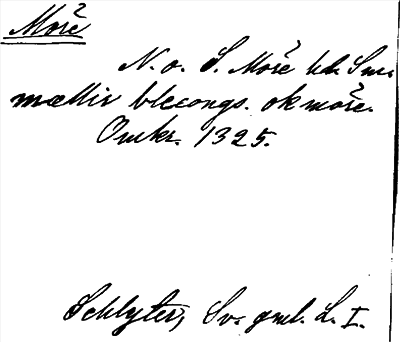 Möre
N. o. S. Möre hd. Sm.
mællir blecongs. ok möre.
Omkr. 1325.
Schlyter, Sv. gml. L. I.